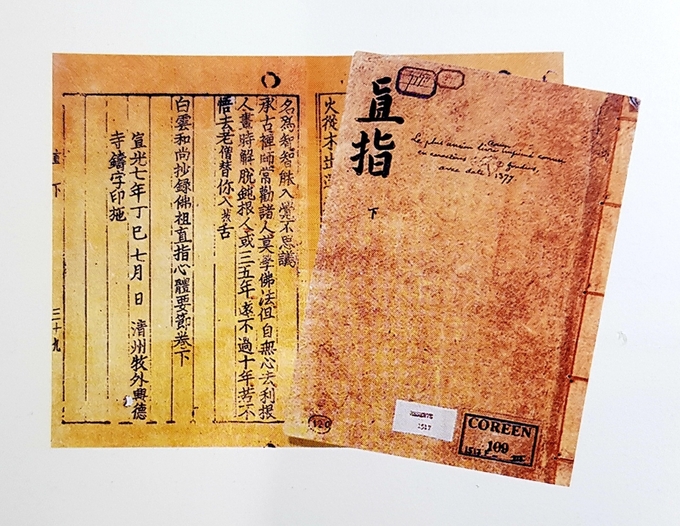 名爲智智能入覺不思議
承古禪師常勸諸人莫學佛法但自無心去利根
人晝時解脫鈍根人或三五年遠不過十年若不
悟去老僧替你入㧞舌
白雲和尚抄錄佛祖直指心體要節卷下
宣光七年丁巳七月 日 淸州牧外興德
寺鑄字印施
下
三十九
直指
下
Le plus ancien livre coréen imprimé connu
en caractères fondus,
avec date = 1377.
COREEN
109